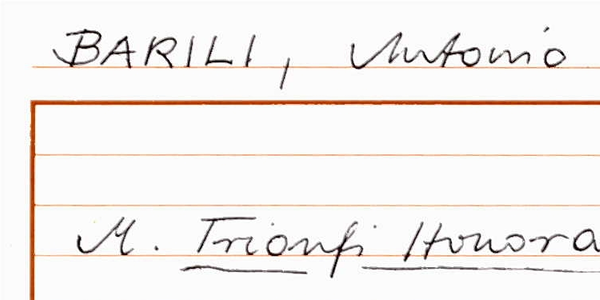 BARILI, Antonio
M. Trionfi Honora